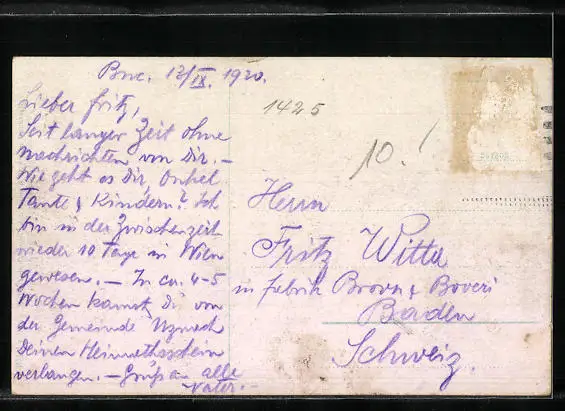 Buc. 12/IX. 1920.
Lieber Fritz,
Seit langer Zeit ohne
nachrichten von Dir. –
Wie geht es Dir, Onkel
Tante & Kindern? Ich
bin in der Zwischenzeit
wieder 10 Tage in Wien
gewesen. – In ca. 4-5
Wochen kannst Du von
der Gemeinde Uznach
Deinen Heimathsschein
verlangen. – Gruß an alle
Vater. –
1425
10.!
Herrn
Fritz
in Fabrik Brown & Boveri
Baden
Schweiz.